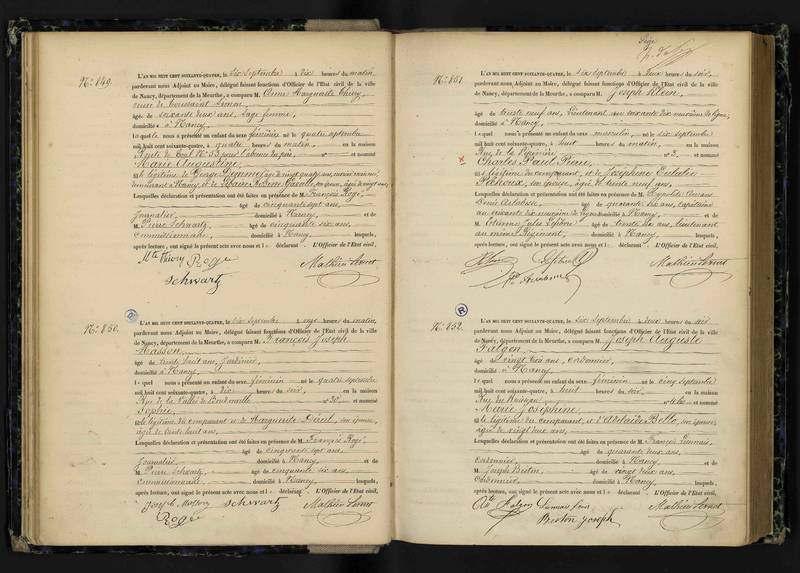 N.° 849.
L'AN MIL HUIT CENT SOIXANTE-QUATRE, le six Septembre à dix heures du matin,
pardevant nous Adjoint au Maire, délégué faisant fonctions d'Officier de l'Etat civil de la ville
de Nancy, département de la Meurthe, a comparu M. Anne Marguerite Thiéry,
veuve de Toussaint
âgé de soixante deux ans, Sage femme,
domicilié à Nancy,
lequel nous a présenté un enfant du sexe féminin né le quatre septembre
mil huit cent soixante-quatre, à quatre heures du matin, en la maison
N° 53 pour l'absence du père, n° et nommé
Marie Augustine,
fille légitime de George âgé de vingt quatre ans,
demeurant à Nancy, et de son épouse, âgée de vingt ans,
Lesquelles déclaration et présentation ont été faites en présence de M. François Rogé,
âgé de cinquante sept ans,
journalier, domicilié à Nancy, et de
M. Pierre Schwartz, âgé de cinquante six ans,
commissionnaire, domicilié à Nancy, lesquels,
après lecture, ont signé le présent acte avec nous et l déclarant. L'Officier de l'Etat civil,
Thiéry Rogé
Schwartz
N.° 850.
L'AN MIL HUIT CENT SOIXANTE-QUATRE, le six Septembre à onze heures du matin,
pardevant nous Adjoint au Maire, délégué faisant fonctions d'Officier de l'Etat civil de la ville
de Nancy, département de la Meurthe, a comparu M. François Joseph
Masson,
âgé de trente huit ans, Jardinier,
domicilié à Nancy,
lequel nous a présenté un enfant du sexe féminin né le quatre septembre
mil huit cent soixante-quatre, à dix heures du soir, en la maison
Rue de la n° 30 et nommé
Sophie,
fille légitime du comparant et de Marguerite son épouse,
âgée de trente huit ans,
Lesquelles déclaration et présentation ont été faites en présence de M. François Rogé,
âgé de cinquante sept ans,
journalier, domicilié à Nancy, et de
M. Pierre Schwartz, âgé de cinquante six ans,
commissionnaire, domicilié à Nancy, lesquels,
après lecture, ont signé le présent acte avec nous et l déclarant. L'Officier de l'Etat civil,
Masson Schwartz
Rogé
N.° 851
L'AN MIL HUIT CENT SOIXANTE-QUATRE, le six Septembre à deux heures du soir,
pardevant nous Adjoint au Maire, délégué faisant fonctions d'Officier de l'Etat civil de la ville
de Nancy, département de la Meurthe, a comparu M. Joseph Klein,
âgé de trente neuf ans, Lieutenant au soixante dix neuvième de ligne,
domicilié à Nancy,
lequel nous a présenté un enfant du sexe masculin, né le six septembre
mil huit cent soixante-quatre, à huit heures du matin, en la maison
Rue de la Pépinière, n° 3, et nommé
Charles Paul Pierre,
fils légitime du comparant, et de Joséphine Eulalie
son épouse, âgée de trente neuf ans,
Lesquelles déclaration et présentation ont été faites en présence de M. Hypolite
âgé de quarante six ans, Capitaine
domicilié à Nancy, et de
M. Etienne Jules âgé de trente six ans, lieutenant
au même Régiment, domicilié à Nancy, lesquels,
après lecture, ont signé le présent acte avec nous et l déclarant. L'Officier de l'Etat civil,
N.° 852.
L'AN MIL HUIT CENT SOIXANTE-QUATRE, le six Septembre à deux heures du soir
pardevant nous Adjoint au Maire, délégué faisant fonctions d'Officier de l'Etat civil de la ville
de Nancy, département de la Meurthe, a comparu M. Joseph Auguste
Falgon,
âgé de vingt trois ans, cordonnier,
domicilié à Nancy,
lequel nous a présenté un enfant du sexe féminin né le cinq septembre
mil huit cent soixante-quatre, à huit heures du soir, en la maison
Rue du et nommé
Marie Joséphine,
fille légitime du comparant, et d'Adélaïde Bello, son épouse,
âgée de vingt deux ans,
Lesquelles déclaration et présentation ont été faites en présence de M. François
âgé de quarante deux ans,
cordonnier, domicilié à Nancy, et de
M. Joseph Briston, âgé de vingt deux ans,
cordonnier, domicilié à Nancy, lesquels,
après lecture, ont signé le présent acte avec nous et l déclarant. L'Officier de l'Etat civil,
Falgon
Briston Joseph